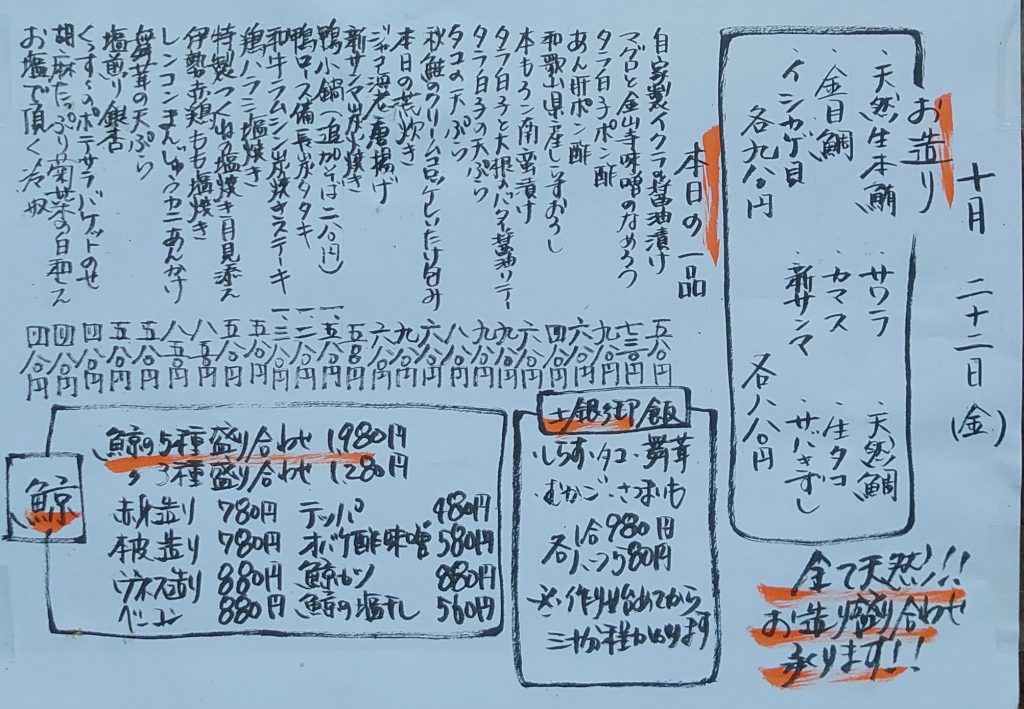 十月 二十二日(金)
お造り
・天然生本鮪 ・サワラ ・天然鯛
・金目鯛 ・カマス ・生タコ
・イシカゲ貝 ・新サンマ ・サバきずし
各九八〇円 各八八〇円
全て天然!!
お造り盛り合わせ
承ります!!
本日の一品
自家製イクラの醤油漬け 五八〇円
マグロと金山寺味噌のなめろう 七三〇円
タラ白子ポン酢 九八〇円
あん肝ポン酢 六八〇円
和歌山県産しらすおろし 四八〇円
本もろこ南蛮漬け 六八〇円
タラ白子と大根のバター醤油ソテー 九八〇円
タラ白子の天ぷら 九八〇円
タコの天ぷら 八八〇円
秋鮭のクリームコロッケしいたけ包み 六八〇円
本日の荒炊き 九八〇円
ジャコ海老唐揚げ 六八〇円
新サンマ炭火焼き 五八〇円
鴨小鍋(追加そば二八〇円) 一、五八〇円
鴨ロース備長炭タタキ 一、二八〇円
和牛ラムシン炭焼きステーキ 一、三八〇円
鶏ハラミ塩焼き 五八〇円
特製つくねの塩焼き月見添え 五八〇円
伊勢赤鶏もも塩焼き 八五〇円
レンコンまんじゅうカニあんかけ 八五〇円
舞茸の天ぷら 五八〇円
塩煎り銀杏 五八〇円
くんすーのポテサラバケットのせ 四八〇円
胡麻たっぷり菊菜の白和え 四八〇円
お塩で頂く冷奴 四八〇円
土鍋御飯
・しらす・タコ・舞茸
・むかご・さつまいも
各1合980円
ハーフ580円
※作り始めてから
三十分程かかります
鯨
鯨の5種盛り合わせ 1,980円
〃 3種盛り合わせ 1,280円
赤身造り 780円 テッパ 480円
本皮造り 780円 オバケ酢味噌 580円
ウネス造り 880円 鯨カツ 880円
ベーコン 880円 鯨の塩干し 560円